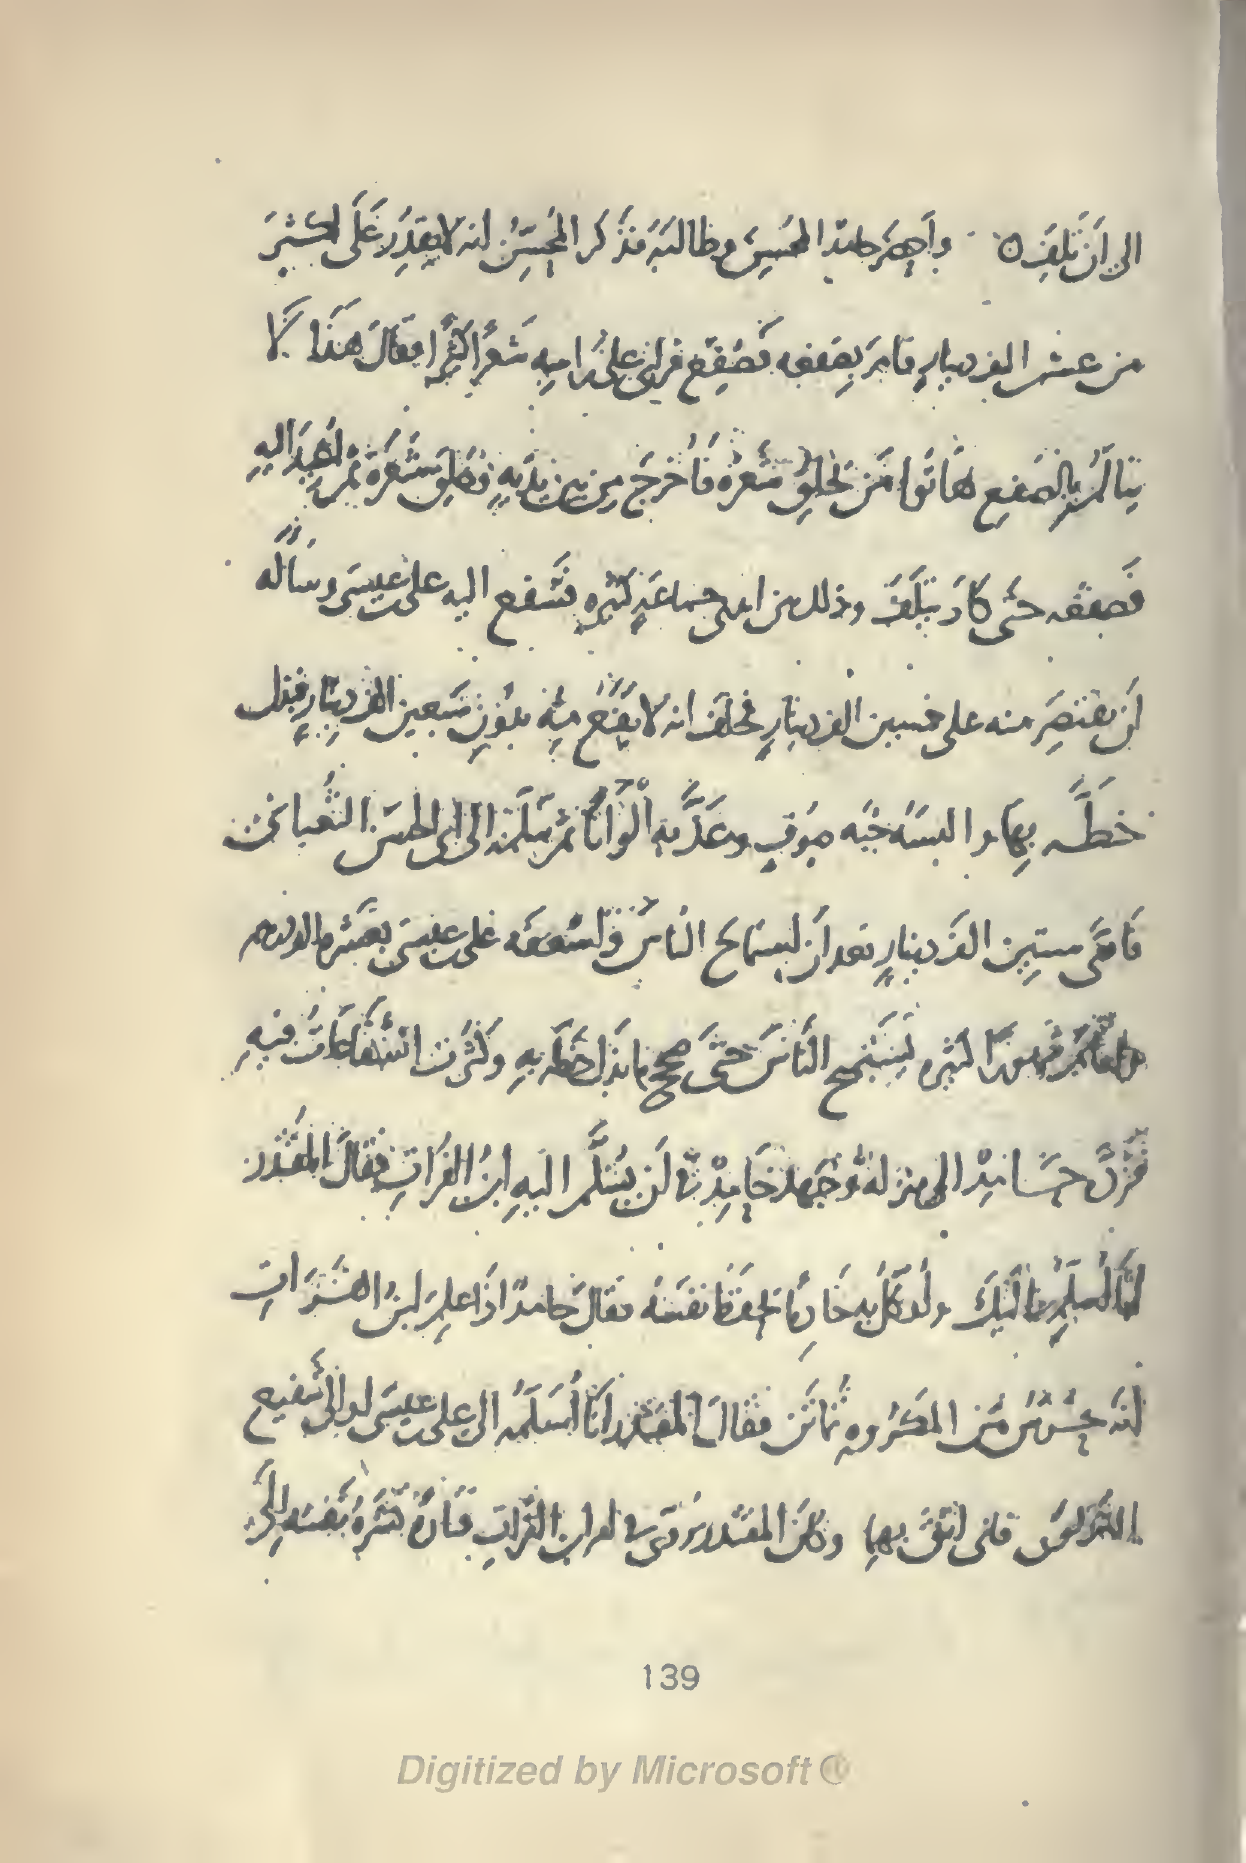 الى ان تلف ۝ واحضر حامد المحسن وطالبه فذكر المحسن انه لا يقدر على اكثر
من عشرين الف دينار فامر بصفعه فصفع فراى على راسه شعرا كثيرا فقال هذا لا
يتالم بالصفع هاتوا من يحلق شعره فاخرج من بين يديه فحلق شعره ثم اعيد اليه
فصفعه حتى كاد يتلف وذلك من ايدى جماعة كثيره فشفع اليه على بن عيسى وساله
ان يقتصر منه على خمسين الف دينار فحلف انه لا يقنع منه بدون سبعين الف دينار فبذل
خطه بها والبسه جبه صوف وعذبه الوانا ثم سلمه الى ابى الحسن الثعبانى
فادى ستين الف دينار بعد ان استماح الناس فاسعفه على بن عيسى بعشره الاف درهم
كثيره يستميح الناس حتى صحح ما بذل خطه به وكثرت الشفاعات فيه
فرد حامد الى منزله وجهد حامد فى ان يسلم اليه ابن الفرات فقال المقتدر
انا اسلمه اليك واوكل به خادما يحفظ نفسه فقال حامد اذا علم ابن الفرات
انه محروس من المكروه تماتن فقال المقتدر انا اسلمه الى على بن عيسى او الى شفيع
اللولوى فانى اثق بهما وكان المقتدر يروى فى امر ابن الفرات فتارة تشره نفسه الى
139
Digitized by Microsoft ®